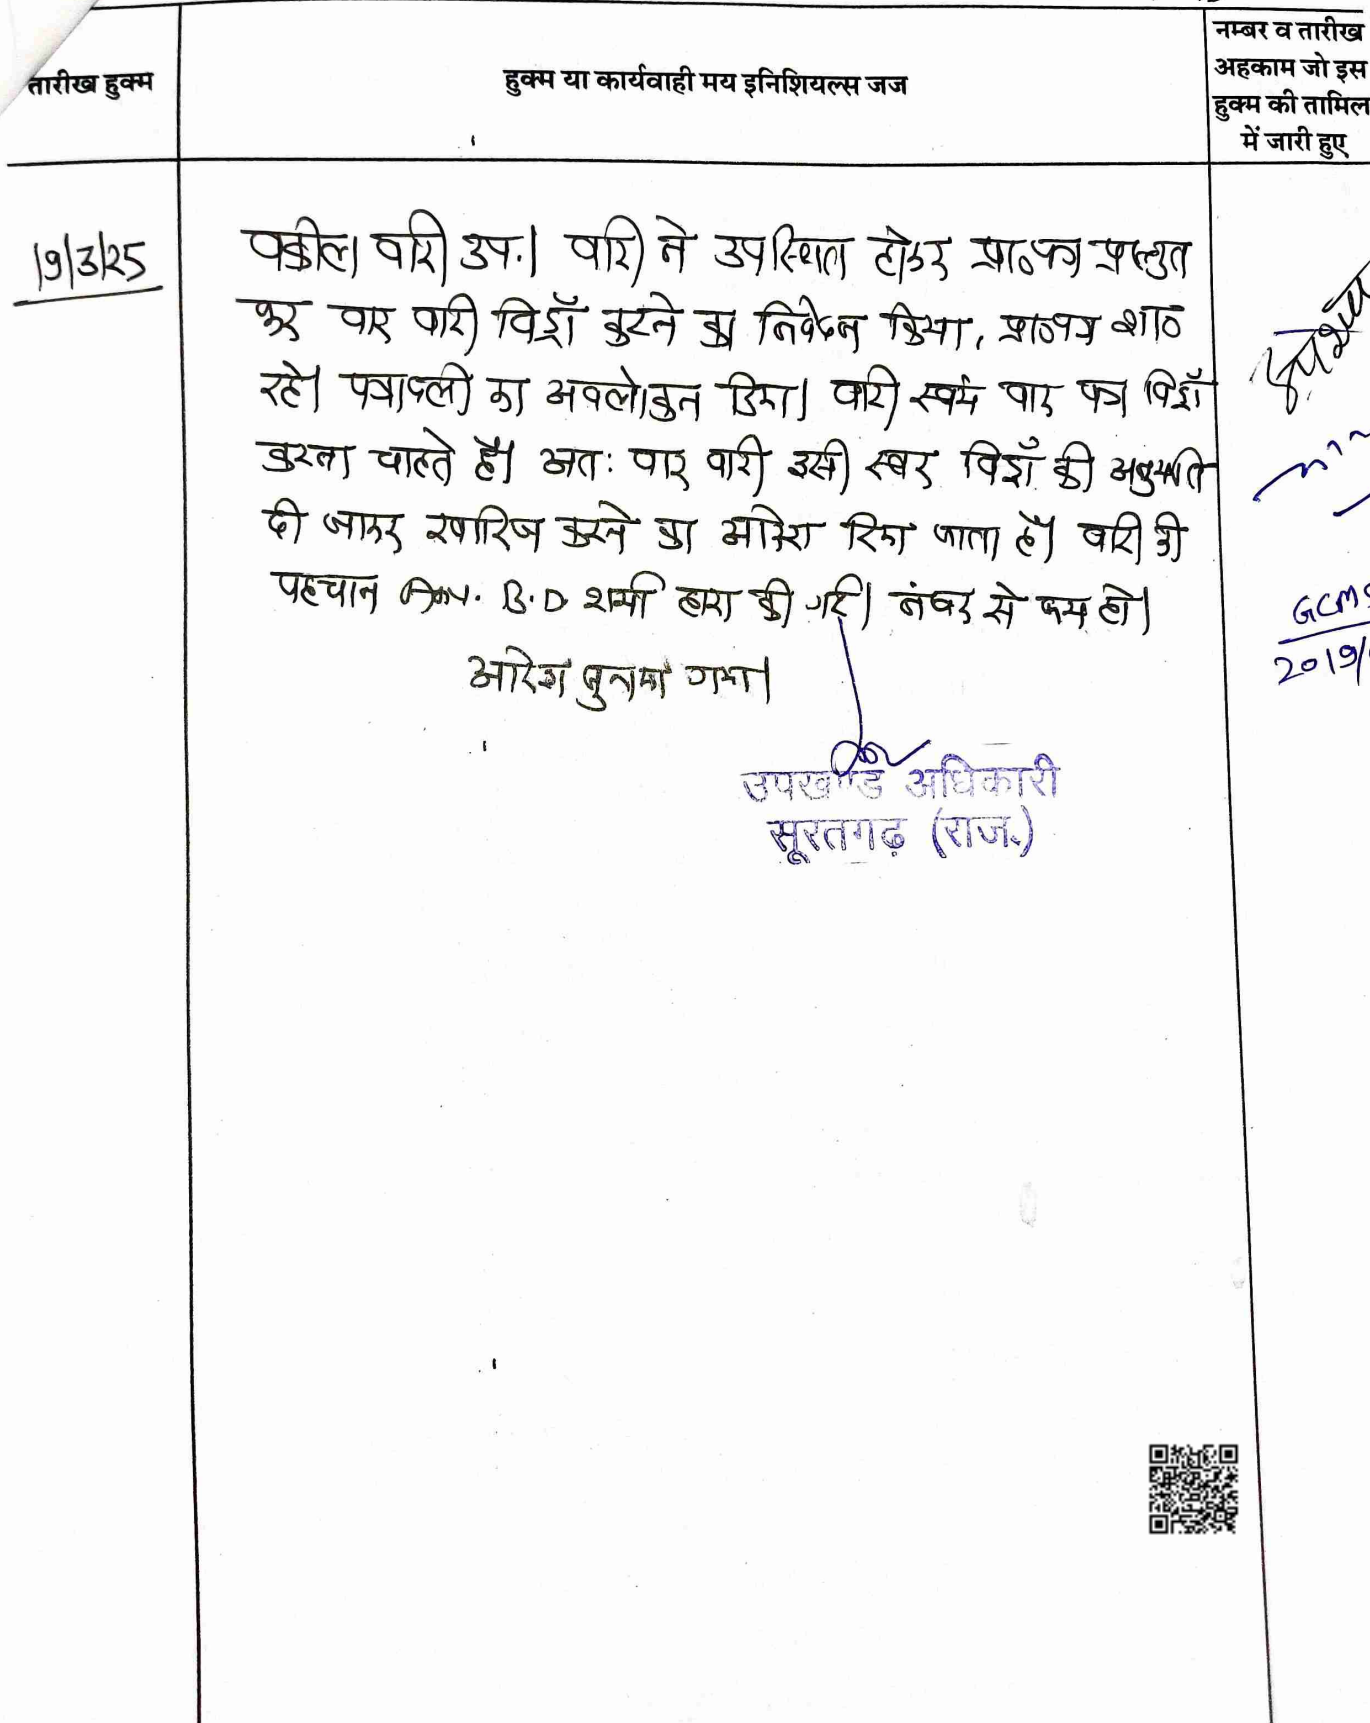 तारीख हुक्म
हुक्म या कार्यवाही मय इनिशियल्स जज
नम्बर व तारीख
अहकाम जो इस
हुक्म की तामिल
में जारी हुए
19/3/25
वकील वादी उप.। वादी ने उपस्थित होकर प्रा०पत्र प्रस्तुत
कर वाद वादी विड्रॉ करने का निवेदन किया, प्रा०पत्र शा०
रहे। पत्रावली का अवलोकन किया। वादी स्वयं वाद पत्र विड्रॉ
करना चाहते हैं। अतः वाद वादी इसी स्तर विड्रॉ की अनुमति
दी जाकर खारिज करने का आदेश दिया जाता है। वादी की
पहचान Adv. B.D शर्मा द्वारा की गई। नंबर से कम हो।
आदेश सुनाया गया।
उपखण्ड अधिकारी
सूरतगढ़ (राज.)
GCMS
2019/